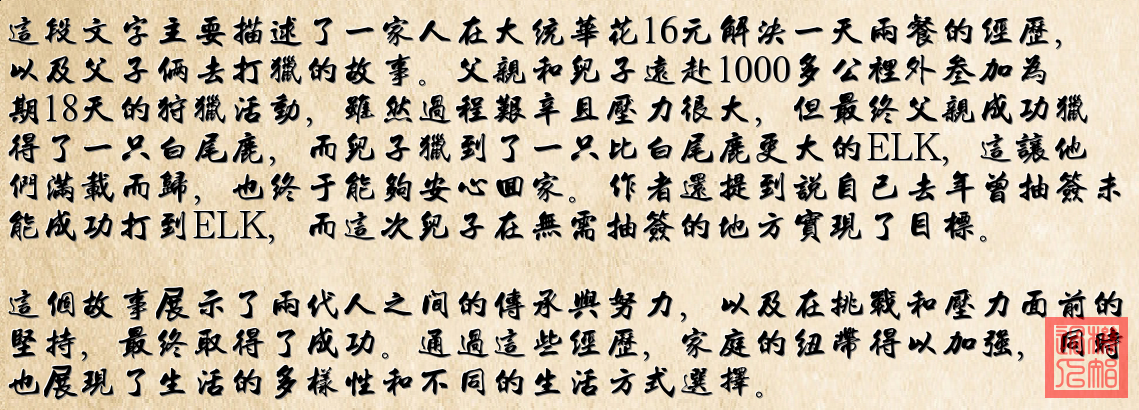 這段文字主要描述了一家人在大統華花16元解決一天兩餐的經歷,
以及父子倆去打獵的故事。父親和兒子遠赴1000多公裡外參加為
期18天的狩獵活動,雖然過程艱辛且壓力很大,但最終父親成功獵
得了一只白尾鹿,而兒子獵到了一只比白尾鹿更大的ELK,這讓他
們滿載而歸,也終于能夠安心回家。作者還提到說自己去年曾抽簽未
能成功打到ELK,而這次兒子在無需抽簽的地方實現了目標。
這個故事展示了兩代人之间的傳承與努力,以及在挑戰和壓力面前的
堅持,最終取得了成功。通過這些經歷,家庭的紐帶得以加強,同時
也展現了生活的多樣性和不同的生活方式選擇。